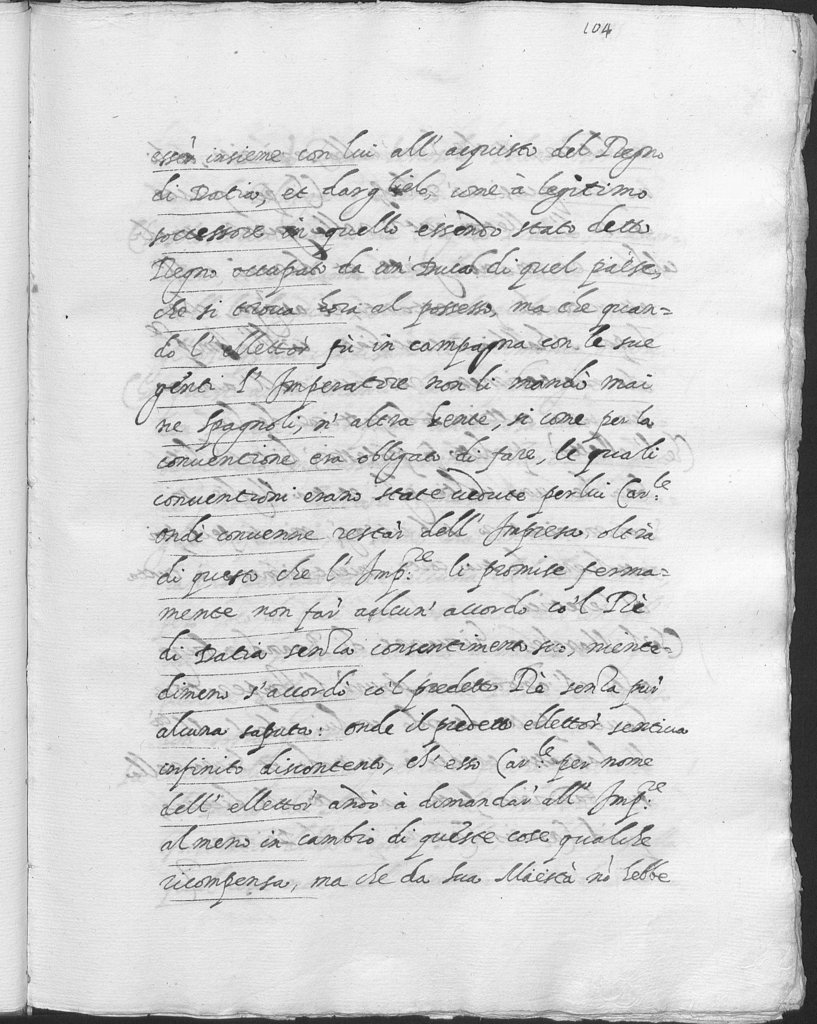 104
esser insieme con lui all' acquisto del Regno
di Datia, et darglielo, come à legitimo
soccessore in quello essendo stato detto
Regno occupato da un' Duca di quel paese,
che si trova hora al possesso, ma che quan=
do l' ellettor fù in campagna con le sue
genti l' Imperatore non li mandò mai
ne spagnoli, n' altra gente, si come per la
conventione era obligato di fare, le quali
conventioni erano state vedute per lui Car:le
onde convenne restar dell' Impresa, oltra
di questo che l' Imp:re li promise ferma=
mente non far' alcun' accordo co'l Rè
di Datia senza consentimento suo, niente=
dimeno s'accordò co'l predetto Rè senza pur'
alcuna saputa: onde il predetto ellettor sentiva
infinito discontento, ch' esso Car:le per nome
dell' ellettor andò à dimandar' all' Imp:re
almeno in cambio di queste cose qualche
ricompensa, ma che da sua Maestà nò hebbe